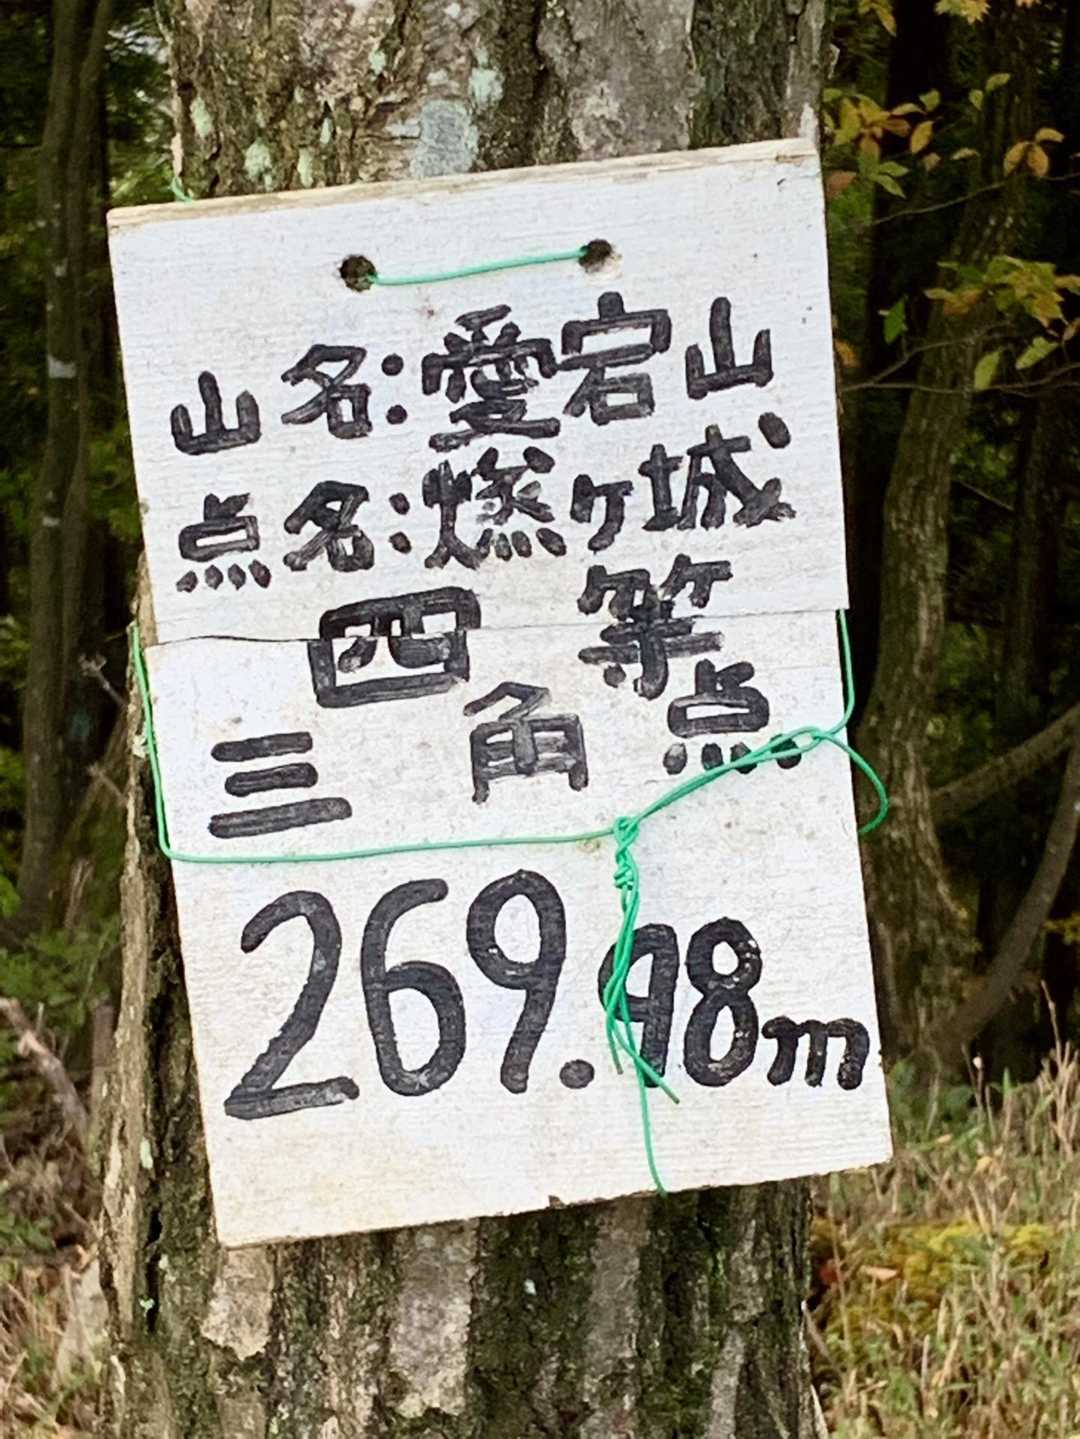 山名:愛宕山
点名:燃ヶ城
四等
三角点
269.98m